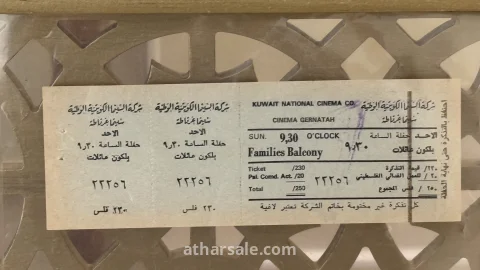 شركة السينما الكويتية الوطنية
سينما غرناطة
الاحد
حفلة الساعة ٩٫٣٠
بلكون عائلات
٢٢٢٥٦
٢٣٠ فلس
شركة السينما الكويتية الوطنية
سينما غرناطة
الاحد
حفلة الساعة ٩٫٣٠
بلكون عائلات
٢٢٢٥٦
٢٣٠ فلس
KUWAIT NATIONAL CINEMA CO. شركة السينما الكويتية الوطنية
CINEMA GERNATAH سينما غرناطة
SUN. 9,30 O'CLOCK الاحد حفلة الساعة ٩٫٣٠
Families Balcony بلكون عائلات
Ticket /230 /٢٣٠ قيمة التذكرة
Pal. Comd. Act. /20 /٢٠ للعمل الفدائي الفلسطيني
Total /250 /٢٥٠ فلس المجموع
٢٢٢٥٦
كل تذكرة غير مختومة بخاتم الشركة تعتبر لاغية
احتفظ بالتذكرة حتى نهاية الحفلة
atharsale.com